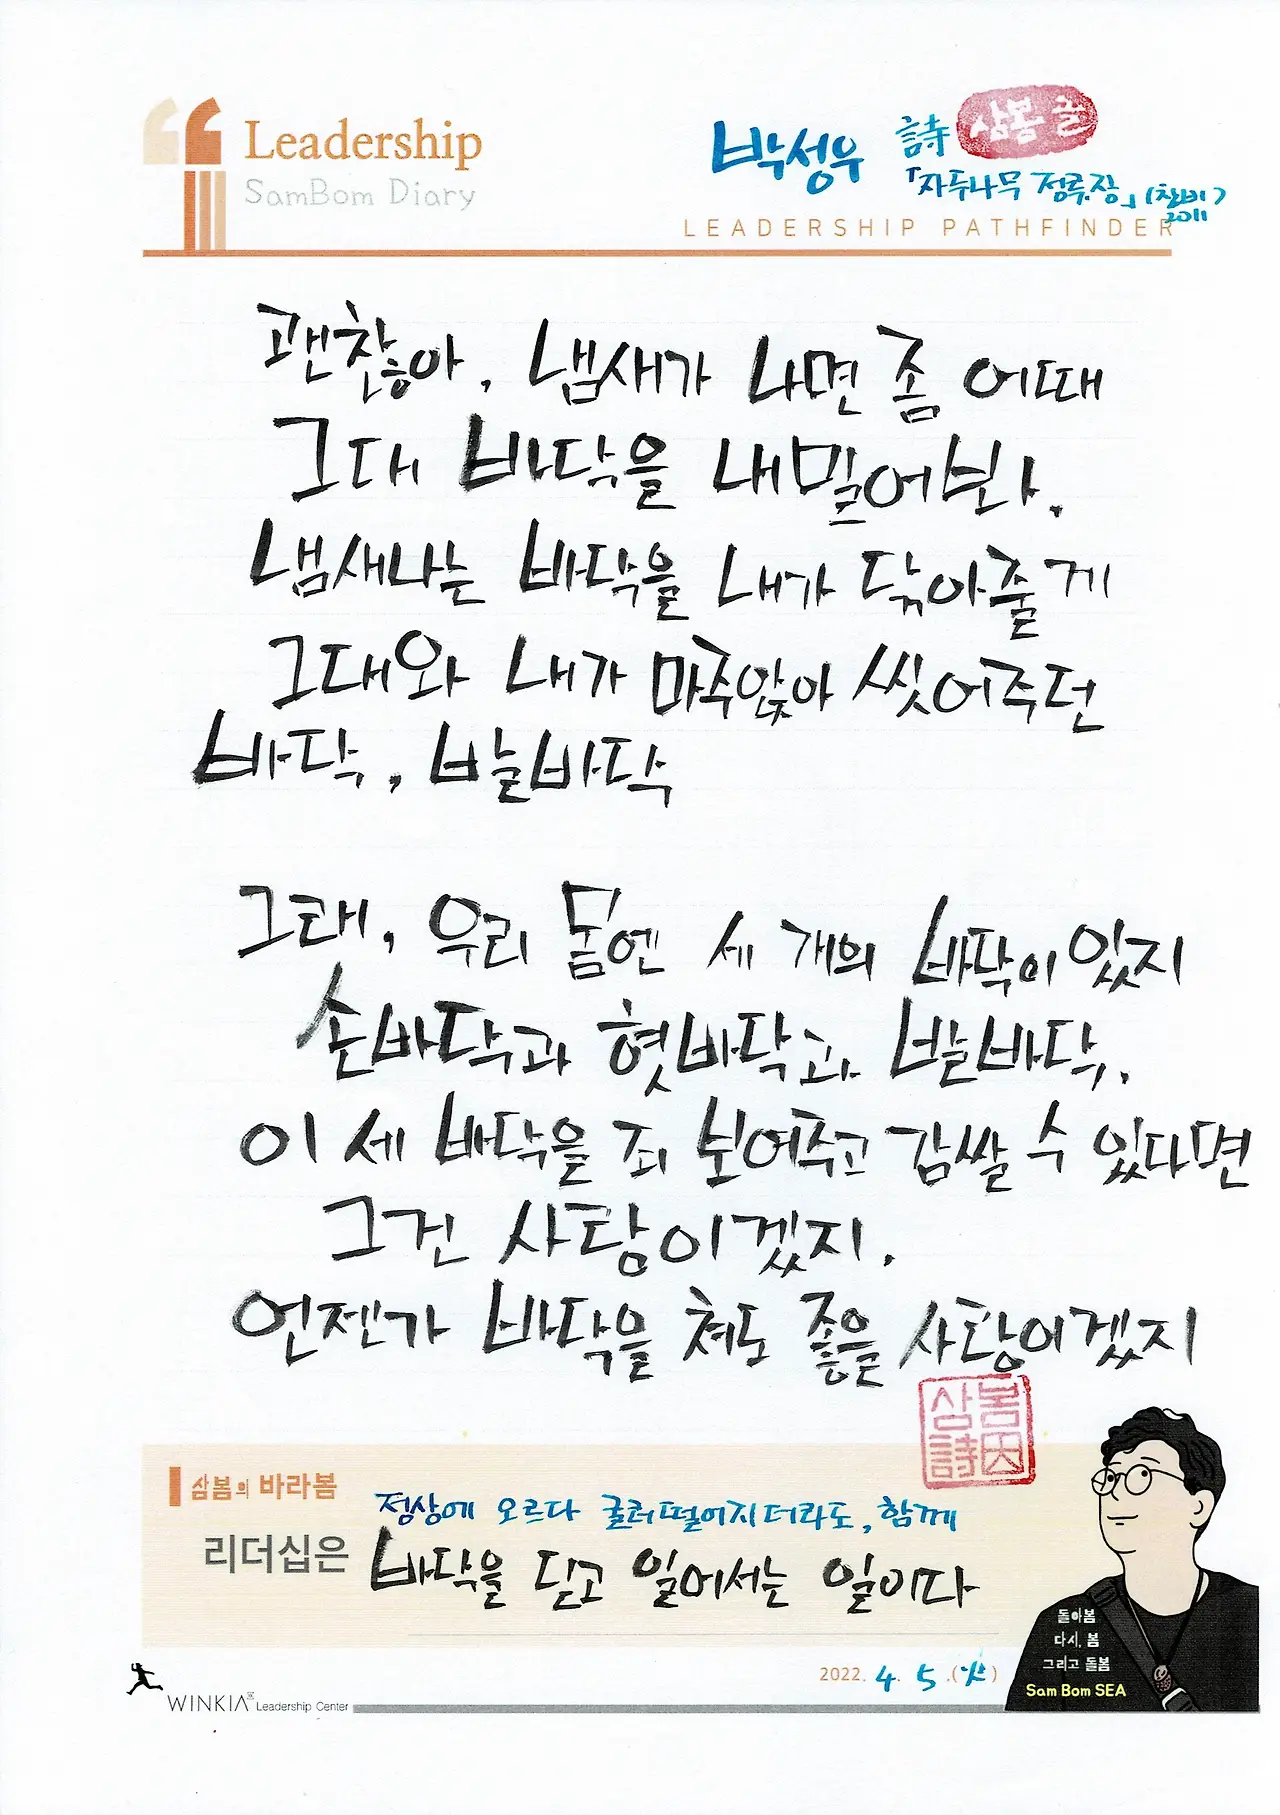 Leadership
SamBom Diary
박성우 詩 삼봄글
「자두나무 정류장」 (창비)
2011
LEADERSHIP PATHFINDER
괜찮아, 냄새가 나면 좀 어때
그대 바닥을 내밀어봐.
냄새나는 바닥을 내가 닦아줄게
그대와 내가 마주앉아 씻어주던
바닥, 발바닥
그래, 우리 몸엔 세 개의 바닥이 있지
손바닥과 혓바닥과 발바닥,
이 세 바닥을 죄 보여주고 감쌀 수 있다면
그건 사랑이겠지.
언젠가 바닥을 쳐도 좋을 사랑이겠지
삼봄
詩因
삼봄의 바라봄
정상에 오르다 굴러떨어지더라도, 함께
리더십은 바닥을 딛고 일어서는 일이다
돌아봄
다시, 봄
그리고 돌봄
Sam Bom SEA
2022. 4. 5 .(火)
WINKIA Leadership Center